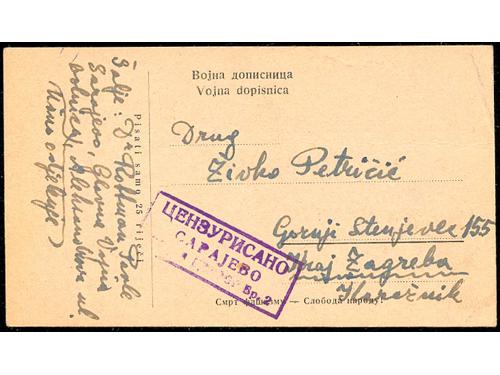 Војна дописница
Vojna dopisnica
Drug
Živko Petričić
Gornji Stenjevec 155
kraj Zagreba
ЦЕНЗУРИСАНО
САРАЈЕВО
Бр. 2
Смрт фашизму — Слобода народу!
Pisati samo 25 riječi
Šalje: Dr
Sarajevo, Glavna Vojna
bolnica, ul.